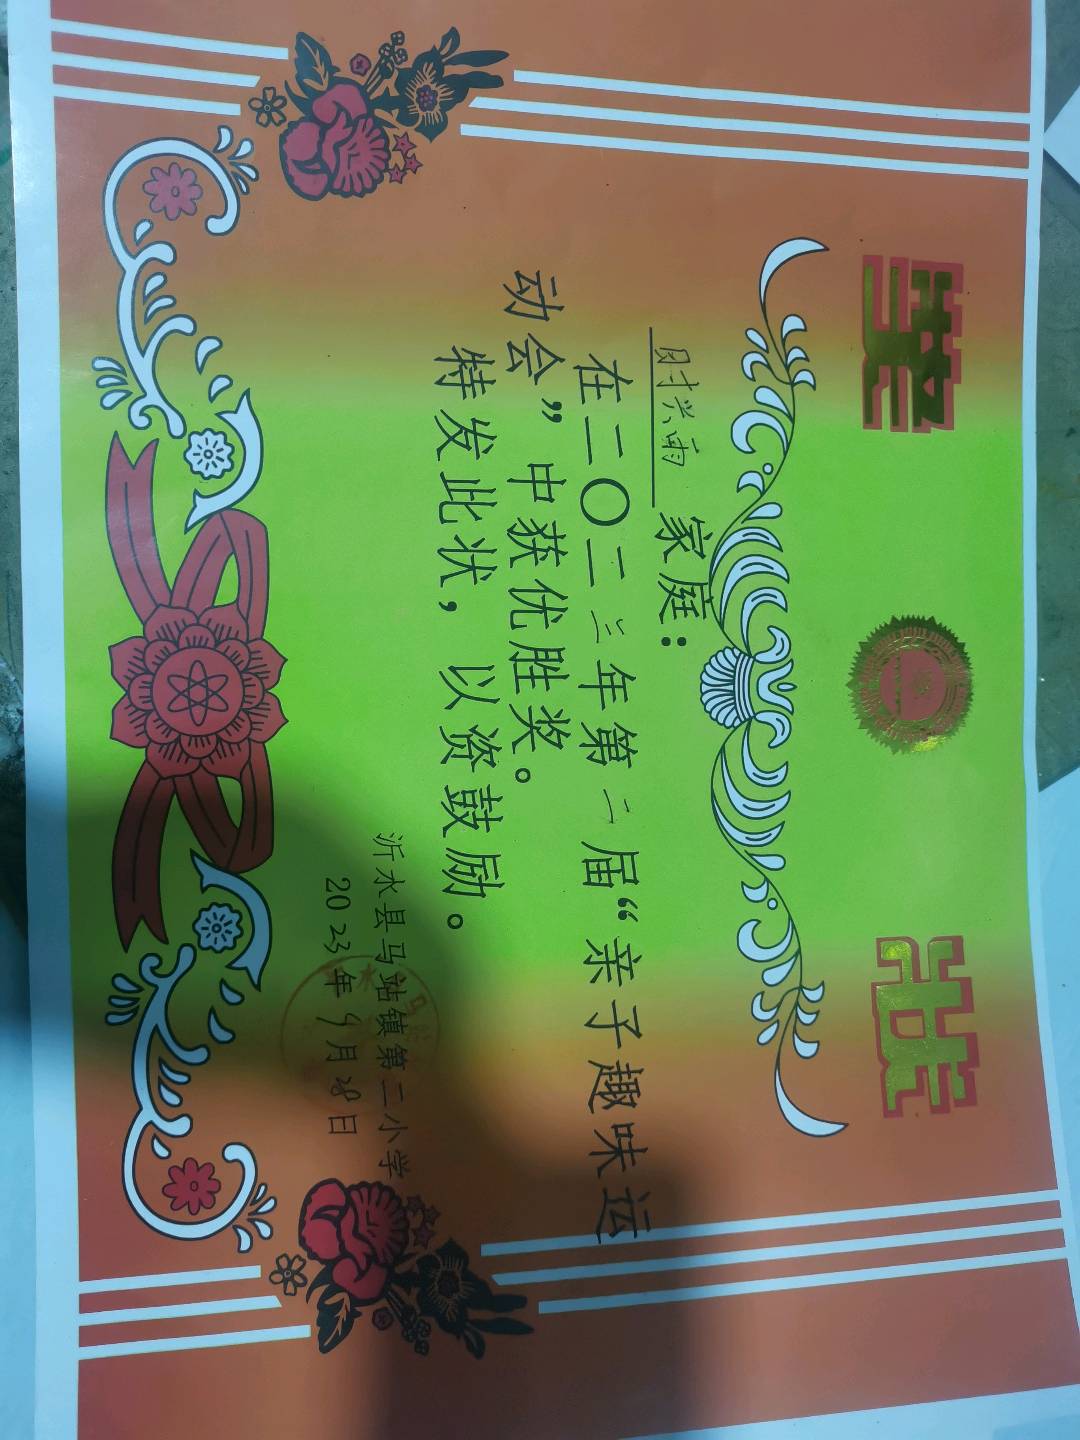 奖 状
兴雨 家庭：
在二〇二三年第二届“亲子趣味运
动会”中获优胜奖。
特发此状，以资鼓励。
沂水县马站镇第二小学
2023年9月28日